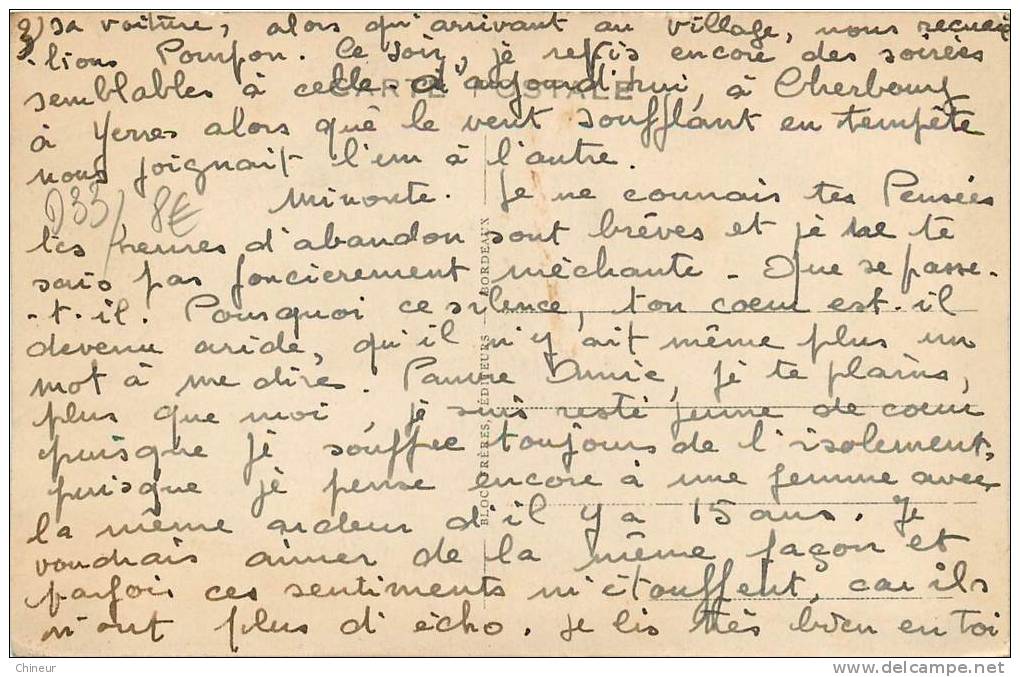 3) sa voiture, alors qu'arrivant au village, nous recueil
-lions Pompon. Ce soir, je revis encore des soirées
CARTE POSTALE
semblables à celle d'aujourd'hui, à Cherbourg
à Yerres alors que le vent soufflant en tempête
nous joignait l'un à l'autre.
D33/8€
Minoute. Je ne connais tes Pensées
les heures d'abandon sont brèves et je ne te
sais pas foncièrement méchante. Que se passe-
-t-il. Pourquoi ce silence, ton coeur est-il
devenu aride, qu'il n'y ait même plus un
mot à me dire. Pauvre Annie, je te plains,
plus que moi, je suis resté jeune de coeur
puisque je souffre toujours de l'isolement,
puisque je pense encore à une femme avec
la même ardeur d'il y a 15 ans. Je
voudrais aimer de la même façon et
parfois ces sentiments m'étouffent, car ils
n'ont plus d'écho. Je lis très bien en toi
BLOC FRÈRES, ÉDITEURS BORDEAUX
Chineur
delcampe.net